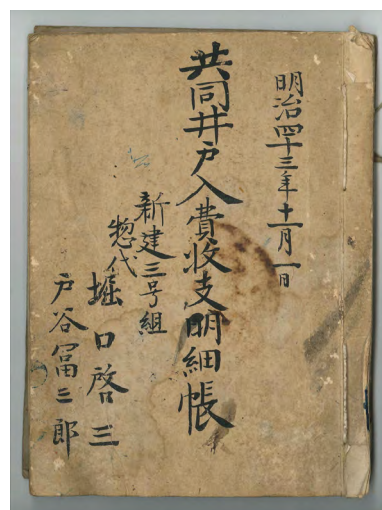 明治四十三年十一月一日
共同井戸入費收支明細帳
新建三号組
惣代
堀口啓三
戸谷冨三郎